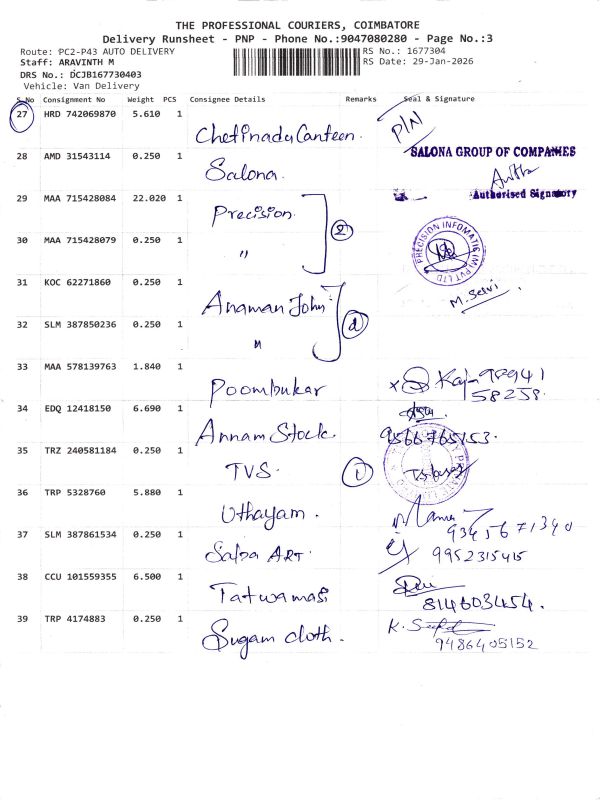 THE PROFESSIONAL COURIERS, COIMBATORE
Delivery Runsheet - PNP - Phone No.:9047080280 - Page No.:3
Route: PC2-P43 AUTO DELIVERY RS No.: 1677304
Staff: ARAVINTH M RS Date: 29-Jan-2026
DRS No.: DCJB167730403
Vehicle: Van Delivery
S.No Consignment No Weight PCS Consignee Details Remarks Seal & Signature
27 HRD 742069870 5.610 1 Chettinadu Canteen P/N
28 AMD 31543114 0.250 1 Salona. SALONA GROUP OF COMPANIES
Authorised Signatory
29 MAA 715428084 22.020 1 Precision. 2
30 MAA 715428079 0.250 1 " PRECISION INFOMATIC (M) PVT LTD
M. Selvi
31 KOC 62271860 0.250 1 Anaman John
32 SLM 387850236 0.250 1 "
33 MAA 578139763 1.840 1 Poombukar
34 EDQ 12418150 6.690 1 Annam Stock 9566765153.
35 TRZ 240581184 0.250 1 TVS. 1
36 TRP 5328760 5.880 1 Uthayam.
37 SLM 387861534 0.250 1 Saba ART. 9952315415
38 CCU 101559355 6.500 1 Tatwamasi 8146034 54.
39 TRP 4174883 0.250 1 Sugam cloth. K.
9486405152